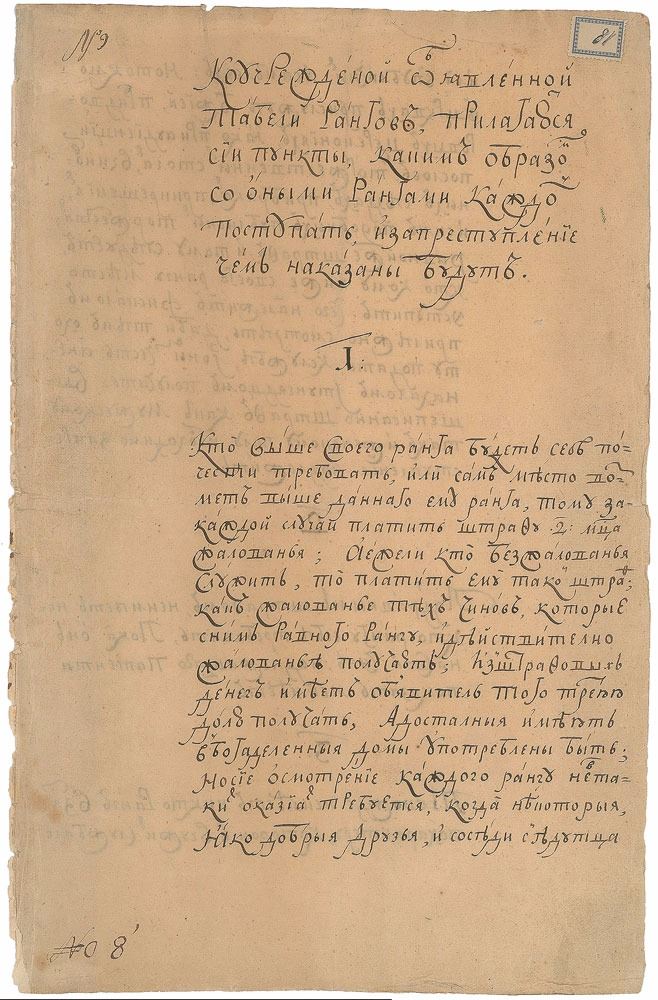 № 9
81
Ко учрежденой объявленной
табели рангов, прилагаются
сіи пункты, каким образом
со оными рангами каждой
поступать, и за преступленіе
чем наказаны будут.
1:
Кто выше своего ранга будеть себѣ по=
чести требовать, или самъ мѣсто воз=
меть выше даннаго ему ранга, тому за
каждой случай платить штрафу .2: мца
жалованья; А ежели кто без жалованья
служитъ, то платить ему такой штраф;
какъ жалованье тѣхъ чиновъ, которые
с ним равного рангу, и дѣйствително
жалованье получаютъ; Из штрафовыхъ
денегъ имѣетъ объявитель того третью
долю получать, А досталныя имѣютъ
в богаделенныя домы употреблены быть;
Но сіе осмотрѣніе каждого рангу не в та=
ких оказіах требуется, когда нѣкоторыя,
яко добрыя друзья, и сосѣди съѣдутца
№ 8